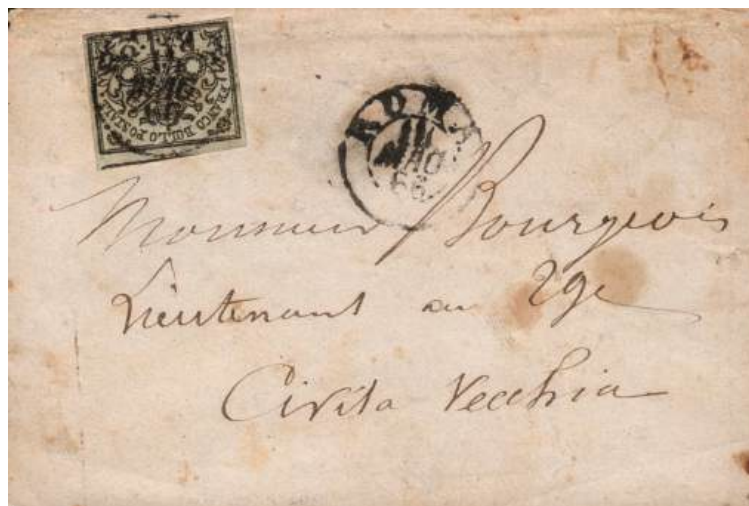 FRANCO BOLLO POSTALE
ROMA
11
MAG
66
Monsieur Bourgeois
Lieutenant au 29e
Civita Vecchia